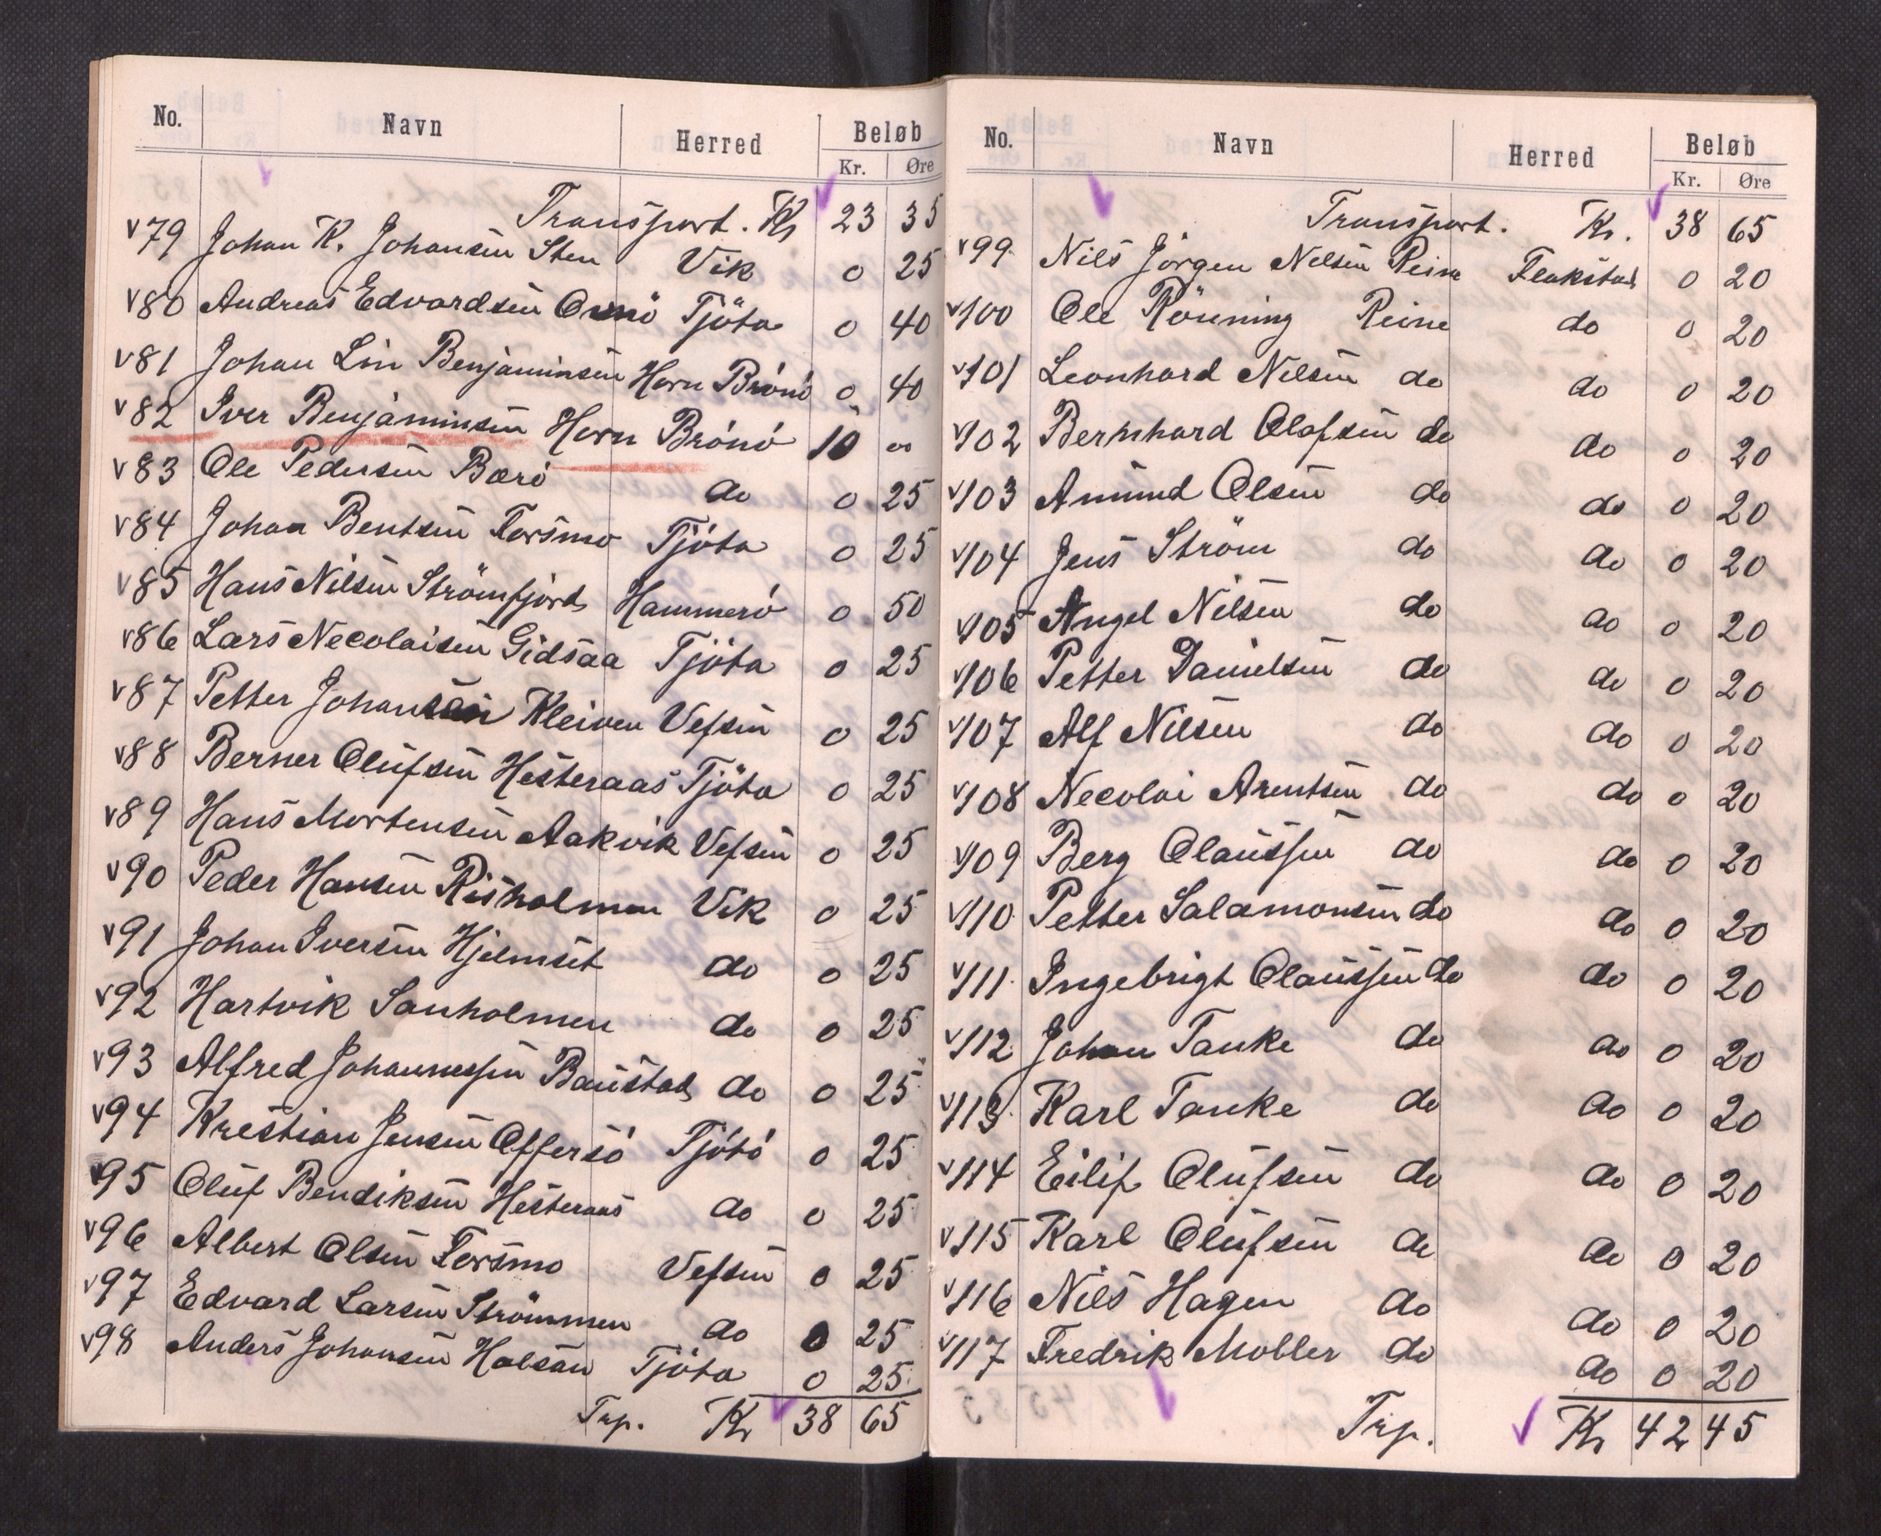 No. Navn Herred Beløb
Kr. Øre
Transport. Kr 23 35
v79 Johan K. Johansen Sten Vik 0 25
v80 Andreas Edvardsen Tjöta 0 40
v81 Johan Lin Benjaminsen Horn Brönö 0 40
v82 Iver Benjaminsen Horn Brönö 10 00
v83 Ole Pedersen Bærö do 0 25
v84 Johan Bentsen Forsmo Tjöta 0 25
v85 Hans Nilsen Strömfjord Hammerö 0 50
v86 Lars Necolaisen Gidsaa Tjöta 0 25
v87 Petter Johansen Kleiven Vefsen 0 25
v88 Berner Olufsen Hesteraas Tjöta 0 25
v89 Hans Mortensen Aakvik Vefsen 0 25
v90 Peder Hansen Risholmen Vik 0 25
v91 Johan Iversen Hjelmset do 0 25
v92 Hartvik Sanholmen do 0 25
v93 Alfred Johannessen Baustad do 0 25
v94 Krestian Jensen Offersö Tjötö 0 25
v95 Oluf Bendiksen Hesteraas do 0 25
v96 Albert Olsen Forsmo Vefsen 0 25
v97 Edvard Larsen Strömmen do 0 25
v98 Anders Johansen Halsan Tjöta 0 25
Trp. Kr 38 65
No. Navn Herred Beløb
Kr. Øre
Transport. Kr. 38 65
v99 Nils Jörgen Nelsen Reine Flakstad 0 20
v100 Ole Rönning Reine do 0 20
v101 Leonhard Nilsen do do 0 20
v102 Bernhard Olafsen do do 0 20
v103 Amund Olsen do do 0 20
v104 Jens Ström do do 0 20
v105 Angel Nilsen do do 0 20
v106 Petter Danielsen do do 0 20
v107 Alf Nilsen do do 0 20
v108 Necolai Arentsen do do 0 20
v109 Berg Claussen do do 0 20
v110 Petter Salamonsen do do 0 20
v111 Ingebrigt Claussen do do 0 20
v112 Johan Tanke do do 0 20
v113 Karl Tanke do do 0 20
v114 Eilif Olufsen do do 0 20
v115 Karl Olufsen do do 0 20
v116 Nils Hagen do do 0 20
v117 Fredrik Moller do do 0 20
Trp. Kr 42 45